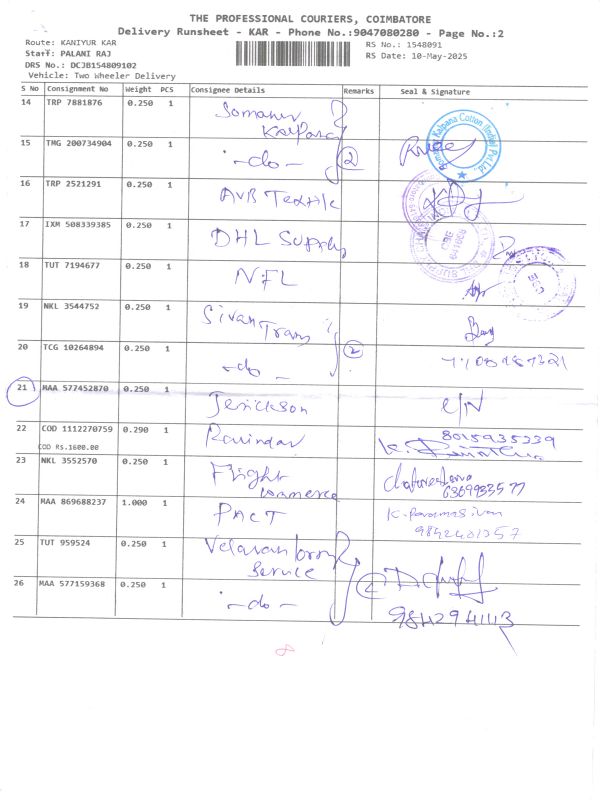 THE PROFESSIONAL COURIERS, COIMBATORE
Delivery Runsheet - KAR - Phone No.:9047080280 - Page No.:2
Route: KANIYUR KAR
RS No.: 1548091
Staff: PALANI RAJ
RS Date: 10-May-2025
DRS No.: DCJB154809102
Vehicle: Two Wheeler Delivery
S No Consignment No Weight PCS Consignee Details Remarks Seal & Signature
14 TRP 7881876 0.250 1 Somanur
Kalpana
15 TMG 200734904 0.250 1 -do- 2
16 TRP 2521291 0.250 1 AVB Textile
17 IXM 508339385 0.250 1 DHL Supply
18 TUT 7194677 0.250 1 NFL
19 NKL 3544752 0.250 1 Sivan Trans
20 TCG 10264894 0.250 1 -do- 2
21 MAA 577452870 0.250 1 Jerickson C/N
22 COD 1112270759 0.290 1 Ravindar 8015935339
COD RS.1600.00
23 NKL 3552570 0.250 1 Flight
commerce 6369933577
24 MAA 869688237 1.000 1 PACT K. Paramasivan
9842401257
25 TUT 959524 0.250 1 Velavan lorry
Service
26 MAA 577159368 0.250 1 -do- 2
984294113
8